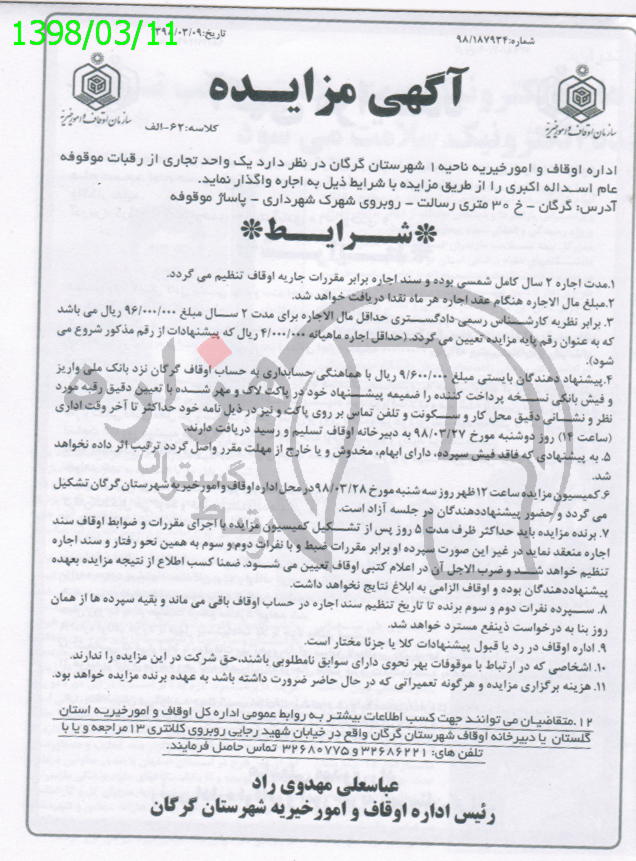 1398/03/11
شماره:۹۸/۱۸۷۹۳۴
تاریخ:۱۳۹۸/۰۳/۰۹
آگهی مزایـده
سازمان اوقاف و امور خیریه
سازمان اوقاف و امور خیریه
کلاسه:۶۲-الف
اداره اوقاف و امورخیریه ناحیه ۱ شهرستان گرگان در نظر دارد یک واحد تجاری از رقبات موقوفه
عام اسداله اکبری را از طریق مزایده با شرایط ذیل به اجاره واگذار نماید.
آدرس: گرگان - خ ۳۰ متری رسالت - روبروی شهرک شهرداری - پاساژ موقوفه
*شـرایـط*
۱.مدت اجاره ۲ سال کامل شمسی بوده و سند اجاره برابر مقررات جاریه اوقاف تنظیم می گردد.
۲.مبلغ مال الاجاره هنگام عقد اجاره هر ماه نقدا دریافت خواهد شد.
۳. برابر نظریه کارشناس رسمی دادگستری حداقل مال الاجاره برای مدت ۲ سـال مبلغ ۹۶/۰۰۰/۰۰۰ ریال می باشد
که به عنوان رقم پایه مزایده تعیین می گردد.(حداقل اجاره ماهیانه ۴/۰۰۰/۰۰۰ ریال که پیشنهادات از رقم مذکور شروع می
شود).
۴.پیشنهاد دهندگان بایستی مبلغ ۹/۶۰۰/۰۰۰ ریال با هماهنگی حسابداری به حساب اوقاف گرگان نزد بانک ملی واریز
و فیش بانکی نسخه پرداخت کننده را ضمیمه پیشنهاد خود در پاکت لاک و مهر شـده با تعیین دقیق رقبه مورد
نظر و نشانی دقیق محل کار و سکونت و تلفن تماس بر روی پاکت و نیز در ذیل نامه خود حداکثر تا آخر وقت اداری
(ساعت ۱۴) روز دوشنبه مورخ ۹۸/۰۳/۲۷ به دبیرخانه اوقاف تسلیم و رسید دریافت دارند.
۵. به پیشنهادی که فاقد فیش سپرده، دارای ابهام، مخدوش و یا خارج از مهلت مقرر واصل گردد ترتیب اثر داده نخواهد
شد.
۶.کمیسیون مزایده ساعت ۱۲ ظهر روز سه شنبه مورخ ۹۸/۰۳/۲۸ در محل اداره اوقاف و امور خیریه شهرستان گرگان تشکیل
می گردد و حضور پیشنهاددهندگان در جلسه آزاد است.
۷. برنده مزایده باید حداکثر ظرف مدت ۵ روز پس از تشـکیل کمیسیون مزایده با اجرای مقررات و ضوابط اوقاف سند
اجاره منعقد نماید در غیر این صورت سپرده او برابر مقررات ضبط و با نفرات دوم و سوم به همین نحو رفتار و سند اجاره
تنظیم خواهد شـد و ضرب الاجل آن در اعلام کتبی اوقاف تعیین می شـود. ضمنا کسب اطلاع از نتیجه مزایده بعهده
پیشنهاددهندگان بوده و اوقاف الزامی به ابلاغ نتایج نخواهد داشت.
۸. سـپرده نفرات دوم و سوم برنده تا تاریخ تنظیم سند اجاره در حساب اوقاف باقی می ماند و بقیه سپرده ها از همان
روز بنا به درخواست ذینفع مسترد خواهد شد.
۹. اداره اوقاف در رد یا قبول پیشنهادات کلا یا جزئا مختار است.
۱۰. اشخاصی که در ارتباط با موقوفات بهر نحوی دارای سوابق نامطلوبی باشند،حق شرکت در این مزایده را ندارند.
۱۱. هزینه برگزاری مزایده و هرگونه تعمیراتی که در حال حاضر ضرورت داشته باشد به عهده برنده مزایده خواهد بود.
۱۲.متقاضیـان می توانند جهت کسب اطلاعات بیشتـر بـه روابط عمومی اداره کل اوقاف و امورخیریـه استان
گلستان یا دبیرخانه اوقاف شهرستان گرگان واقع در خیابان شهید رجایی روبروی کلانتری ۱۳ مراجعه و یا با
تلفن های: ۳۲۶۸۶۲۲۱ و ۳۲۶۸۰۷۷۵ تماس حاصل فرمایند.
عباسعلی مهدوی راد
رئیس اداره اوقاف و امورخیریه شهرستان گرگان